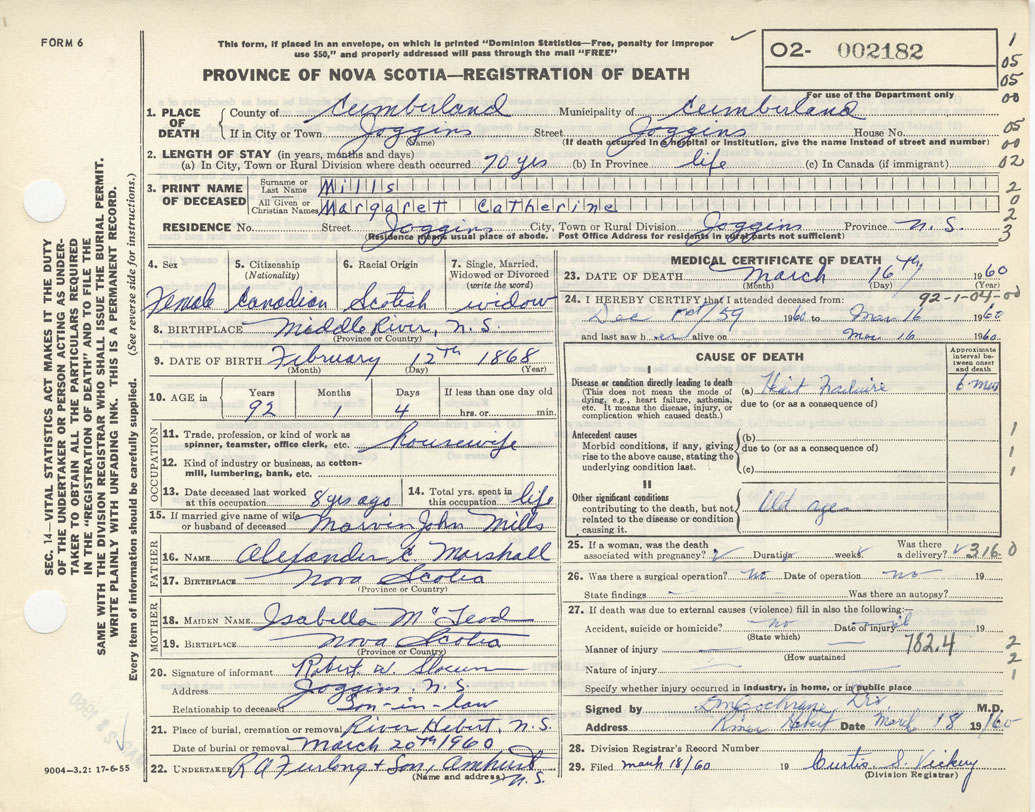 FORM 6
This form, if placed in an envelope, on which is printed "Dominion Statistics—Free, penalty for improper
use $50," and properly addressed will pass through the mail "FREE"
PROVINCE OF NOVA SCOTIA—REGISTRATION OF DEATH
02- 002182
For use of the Department only
1
05
05
00
05
00
02
2
0
2
3
1. PLACE OF DEATH
County of Cumberland Municipality of Cumberland
If in City or Town Joggins Street Joggins House No.
(Name) (If death occurred in a hospital or institution, give the name instead of street and number)
2. LENGTH OF STAY (in years, months and days)
(a) In City, Town or Rural Division where death occurred 70 yrs (b) In Province life (c) In Canada (if immigrant)
3. PRINT NAME OF DECEASED
Surname or Last Name Mills
All Given or Christian Names Margaret Catherine
RESIDENCE No. Street Joggins City, Town or Rural Division Joggins Province N.S.
(Residence means usual place of abode. Post Office Address for residents in rural parts not sufficient)
4. Sex Female
5. Citizenship (Nationality) Canadian
6. Racial Origin Scotish
7. Single, Married, Widowed or Divorced (write the word) widow
8. BIRTHPLACE Middle River, N.S.
(Province or Country)
9. DATE OF BIRTH February 12th 1868
(Month) (Day) (Year)
10. AGE in Years 92 Months 1 Days 4 If less than one day old hrs. or min.
OCCUPATION
11. Trade, profession, or kind of work as spinner, teamster, office clerk, etc. housewife
12. Kind of industry or business, as cotton-mill, lumbering, bank, etc.
13. Date deceased last worked at this occupation 8 yrs ago
14. Total yrs. spent in this occupation life
15. If married give name of wife or husband of deceased Marven John Mills
FATHER
16. NAME Alexander C. Marshall
17. BIRTHPLACE Nova Scotia
(Province or Country)
MOTHER
18. MAIDEN NAME Isabella McLeod
19. BIRTHPLACE Nova Scotia
(Province or Country)
20. Signature of informant Robert W. Slocum
Address Joggins, N.S.
Relationship to deceased Son-in-law
21. Place of burial, cremation or removal River Hebert, N.S.
Date of burial or removal March 20th 1960
22. UNDERTAKER R A Furlong & Son, Amherst
(Name and address) N.S.
MEDICAL CERTIFICATE OF DEATH
23. DATE OF DEATH March 16th 1960
(Month) (Day) (Year)
92-1-04-00
24. I HEREBY CERTIFY that I attended deceased from:
Dec 1st/59 1960 to Mar 16 1960
and last saw her alive on Mar 16 1960
CAUSE OF DEATH
Approximate interval between onset and death
I
Disease or condition directly leading to death
(This does not mean the mode of dying, e.g., heart failure, asthenia, etc. It means the disease, injury, or complication which caused death.)
(a) Heart Failure 6 mos
due to (or as a consequence of)
Antecedent causes
Morbid conditions, if any, giving rise to the above cause, stating the underlying condition last.
(b)
due to (or as a consequence of)
(c)
1
1
1
II
Other significant conditions contributing to the death, but not related to the disease or condition causing it.
Old age
25. If a woman, was the death associated with pregnancy? Duration weeks Was there a delivery? 316 0
26. Was there a surgical operation? no Date of operation no 19
State findings Was there an autopsy?
27. If death was due to external causes (violence) fill in also the following:—
Accident, suicide or homicide? no Date of injury 19
(State which)
Manner of injury 782.4
(How sustained
Nature of injury
2
2
1
Specify whether injury occurred in industry, in home, or in public place
Signed by Cochrane M.D.
Address River Hebert Date March 18 19/60
28. Division Registrar's Record Number
29. Filed March 18/60 19 Curtis S. Vickery
(Division Registrar)
SEC. 14—VITAL STATISTICS ACT MAKES IT THE DUTY
OF THE UNDERTAKER OR PERSON ACTING AS UNDER-
TAKER TO OBTAIN ALL THE PARTICULARS REQUIRED
IN THE "REGISTRATION OF DEATH" AND TO FILE THE
SAME WITH THE DIVISION REGISTRAR WHO SHALL ISSUE THE BURIAL PERMIT.
WRITE PLAINLY WITH UNFADING INK. THIS IS A PERMANENT RECORD.
Every item of information should be carefully supplied. (See reverse side for instructions.)
9004-3.2: 17-6-55